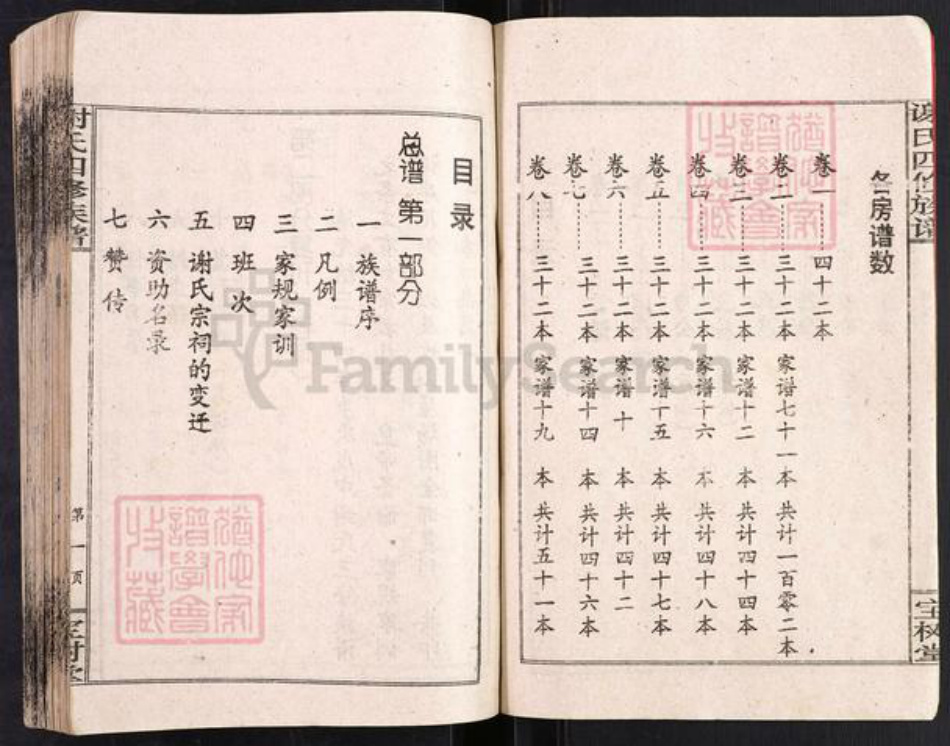 谢氏四修族谱
宝树堂
各房谱数
卷一……四十二本
卷二……三十二本 家谱七十一本 共计一百零二本
卷三……三十二本 家谱十二 本 共计四十四本
卷四……三十二本 家谱十六 本 共计四十八本
卷五……三十二本 家谱十五 本 共计四十七本
卷六……三十二本 家谱十 本 共计四十二
卷七……三十二本 家谱十四 本 共计四十六本
卷八……三十二本 家谱十九 本 共计五十一本
目录
总谱 第一部分
一 族谱序
二 凡例
三 家规家训
四 班次
五 谢氏宗祠的变迁
六 资助名录
七 赞传
谢氏四修族谱
第一页
宝树堂
猶他家
譜學會
收藏
猶他家
譜學會
收藏
FamilySearch